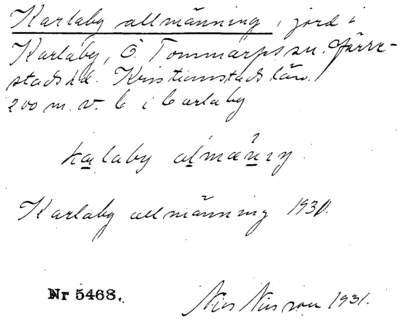 Karlaby allmänning, jord i
Karlaby, Ö. Tommarps sn. Järre-
stads hd. Kristianstads län.
200 m. v. b i Carlaby
kalaby almæniŋ
Karlaby allmänning 1930.
Nr 5468.
Nils Nilsson 1931.